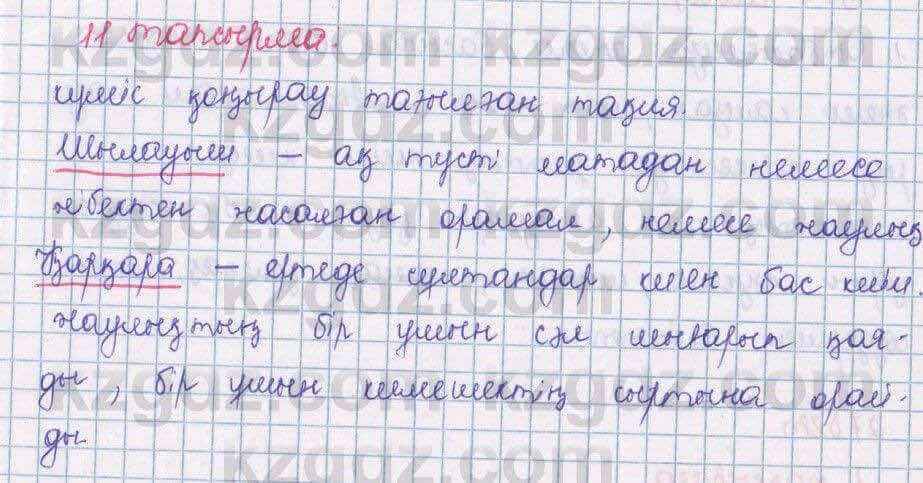 11 тапсырма.
күміс қоңырау тағылған тақия.
Шылауыш – ақ түсті матадан немесе
жібектен жасалған орамал, немесе жаулық
Қарқара – ертеде сұлтандар киген бас киім.
жаулықтың бір ұшын сәл шығарып қоя-
ды, бір ұшын кимешектің сыртына орай-
ды
kzgdz.com